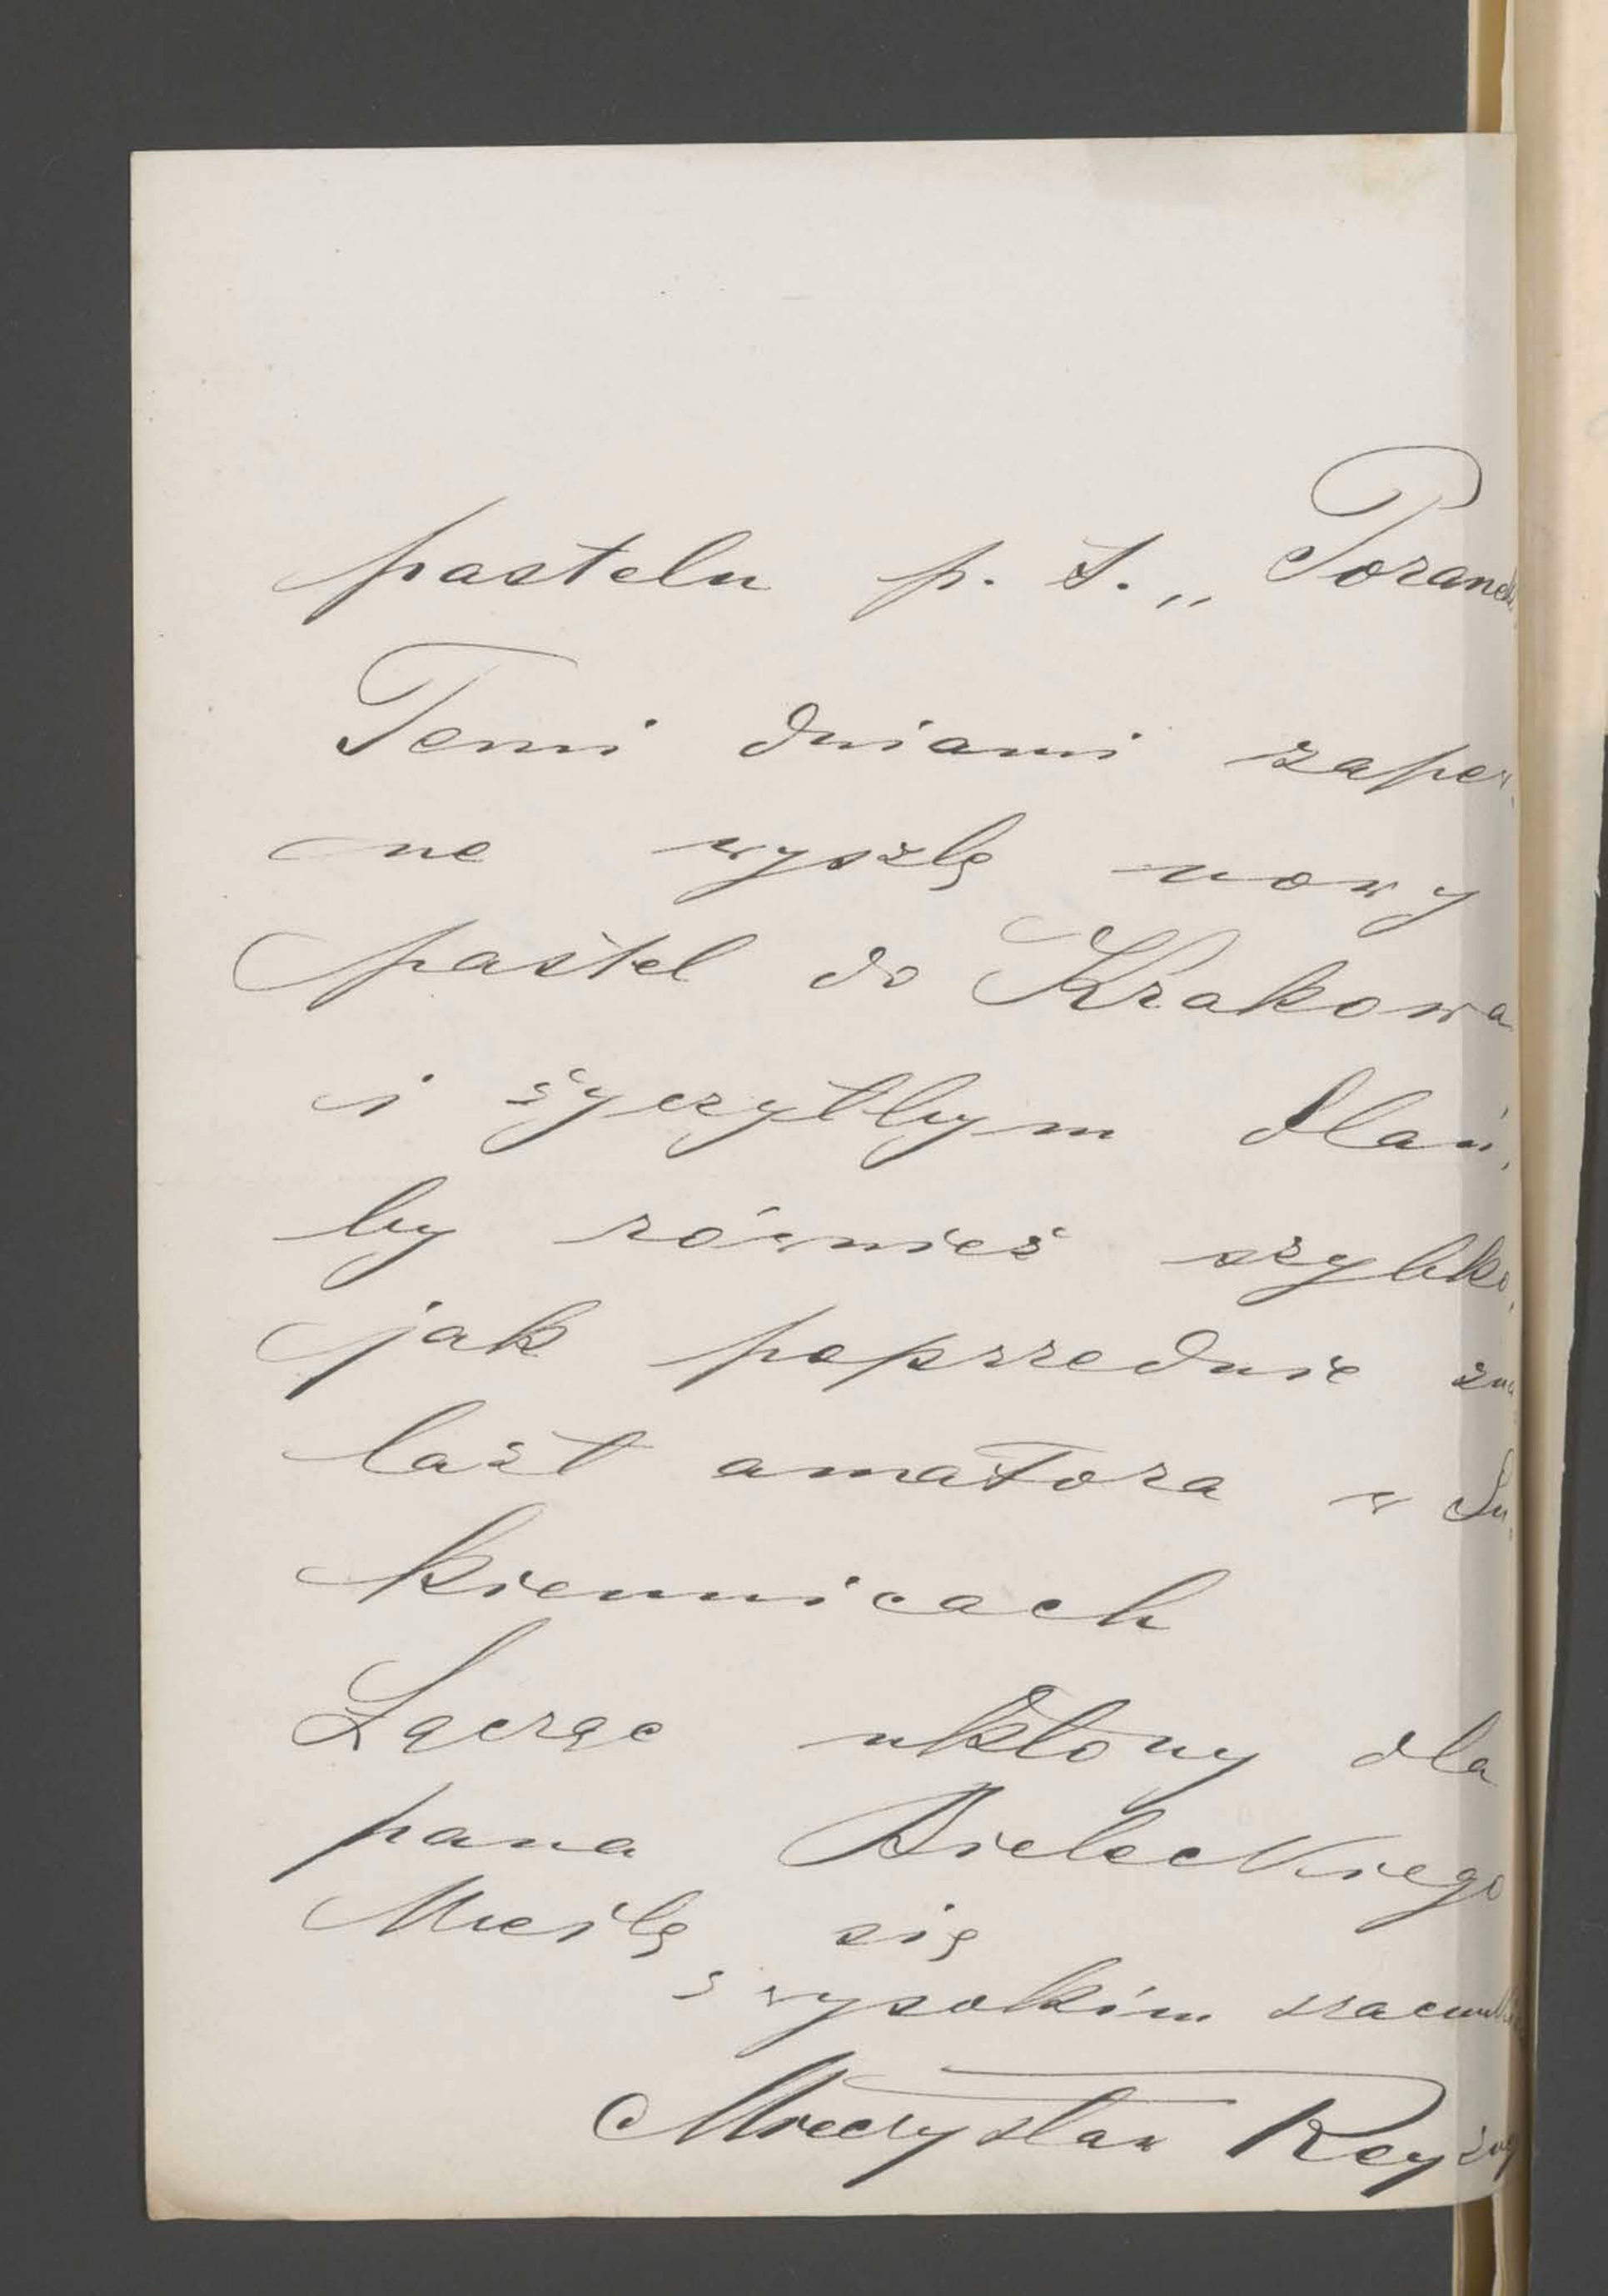 pastelu p. t. „Poranek
Temi dniami zapew-
ne wyszlę nowy
pastel do Krakowa
i życzyłbym dlań,
by również szybko,
jak poprzednie zna-
lazł amatora w Su-
kiennicach
Łącząc ukłony dla
pana Bieleckiego
kreślę się
z wysokim szacunkie
Mieczysław Reyzner